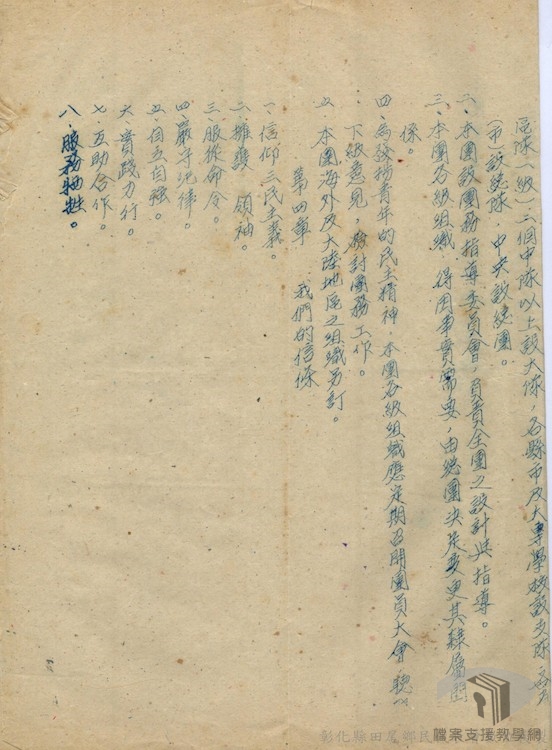 區隊一級）三個中隊以上設大隊，各縣市及大專學校設支隊各省
（市）設總隊，中央設總團。
二、本團設團務指導委員會，負責全團之設計與指導。
三、本團各級組織，得因事實需要，由總團決定變更其隸屬關
係。
四、為發揚青年的民主精神，本團各級組織應定期召開團員大會，聽取
下級意見，檢討團務工作。
五、本團海外及大陸地區之組織另訂。
第四章　我們的信條
一、信仰三民主義。
二、擁護　領袖。
三、服從命令。
四、嚴守紀律。
五、自立自強。
六、實踐力行。
七、互助合作。
八、服務犧牲。
彰化縣田尾鄉民
檔案支援教學網